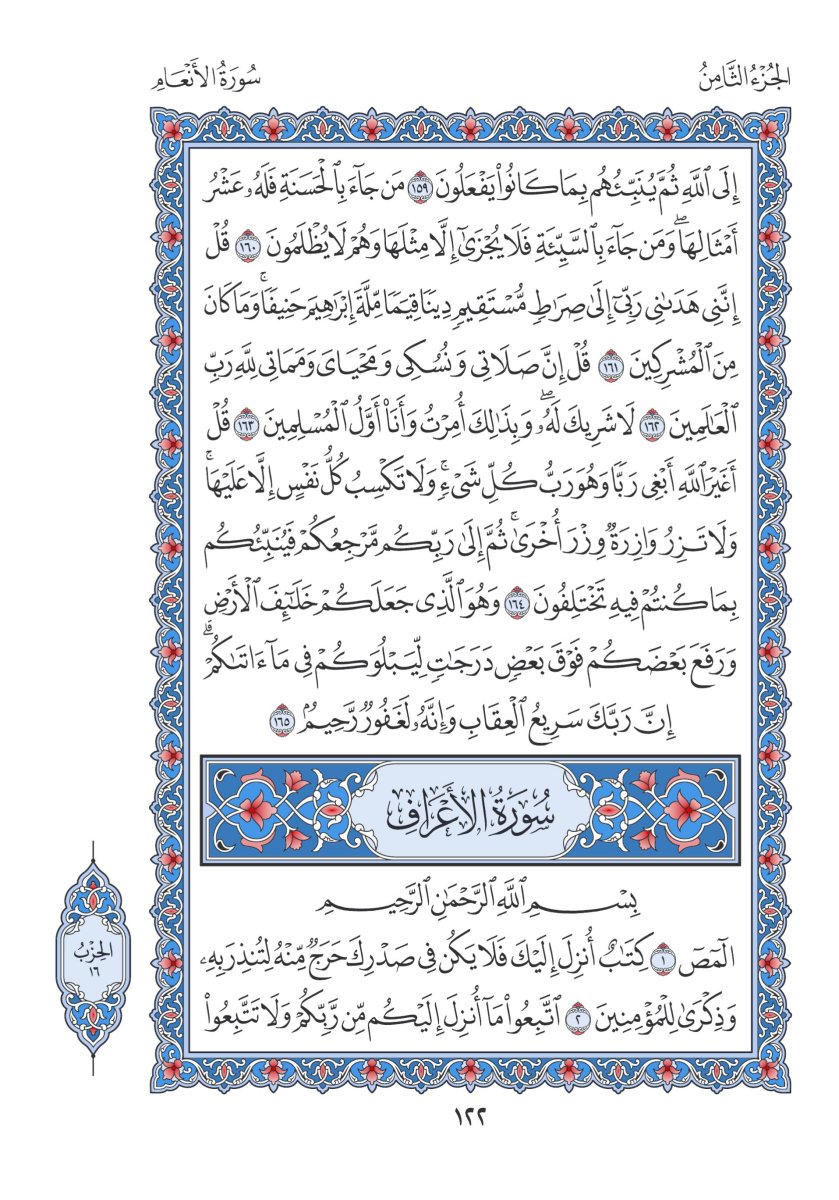 الجُزْءُ الثَّامِنُ
سُورَةُ الأَنْعَامِ
إِلَى ٱللَّهِ ثُمَّ يُنَبِّئُهُم بِمَا كَانُوا۟ يَفْعَلُونَ ١٥٩ مَن جَآءَ بِٱلْحَسَنَةِ فَلَهُۥ عَشْرُ
أَمْثَالِهَاۖ وَمَن جَآءَ بِٱلسَّيِّئَةِ فَلَا يُجْزَىٰٓ إِلَّا مِثْلَهَا وَهُمْ لَا يُظْلَمُونَ ١٦٠ قُلْ
إِنَّنِى هَدَىٰنِى رَبِّىٓ إِلَىٰ صِرَٰطٍ مُّسْتَقِيمٍ دِينًا قِيَمًا مِّلَّةَ إِبْرَٰهِيمَ حَنِيفًاۚ وَمَا كَانَ
مِنَ ٱلْمُشْرِكِينَ ١٦١ قُلْ إِنَّ صَلَاتِى وَنُسُكِى وَمَحْيَاىَ وَمَمَاتِى لِلَّهِ رَبِّ
ٱلْعَٰلَمِينَ ١٦٢ لَا شَرِيكَ لَهُۥۖ وَبِذَٰلِكَ أُمِرْتُ وَأَنَا۠ أَوَّلُ ٱلْمُسْلِمِينَ ١٦٣ قُلْ
أَغَيْرَ ٱللَّهِ أَبْغِى رَبًّا وَهُوَ رَبُّ كُلِّ شَىْءٍۚ وَلَا تَكْسِبُ كُلُّ نَفْسٍ إِلَّا عَلَيْهَاۚ
وَلَا تَزِرُ وَازِرَةٌ وِزْرَ أُخْرَىٰۚ ثُمَّ إِلَىٰ رَبِّكُم مَّرْجِعُكُمْ فَيُنَبِّئُكُم
بِمَا كُنتُمْ فِيهِ تَخْتَلِفُونَ ١٦٤ وَهُوَ ٱلَّذِى جَعَلَكُمْ خَلَٰٓئِفَ ٱلْأَرْضِ
وَرَفَعَ بَعْضَكُمْ فَوْقَ بَعْضٍ دَرَجَٰتٍ لِّيَبْلُوَكُمْ فِى مَآ ءَاتَىٰكُمْۗ
إِنَّ رَبَّكَ سَرِيعُ ٱلْعِقَابِ وَإِنَّهُۥ لَغَفُورٌ رَّحِيمٌۢ ١٦٥
سُورَةُ الأَعْرَافِ
بِسْمِ ٱللَّهِ ٱلرَّحْمَٰنِ ٱلرَّحِيمِ
الٓمٓصٓ ١ كِتَٰبٌ أُنزِلَ إِلَيْكَ فَلَا يَكُن فِى صَدْرِكَ حَرَجٌ مِّنْهُ لِتُنذِرَ بِهِۦ
وَذِكْرَىٰ لِلْمُؤْمِنِينَ ٢ ٱتَّبِعُوا۟ مَآ أُنزِلَ إِلَيْكُم مِّن رَّبِّكُمْ وَلَا تَتَّبِعُوا۟
الحِزْبُ
١٦
١٢٢